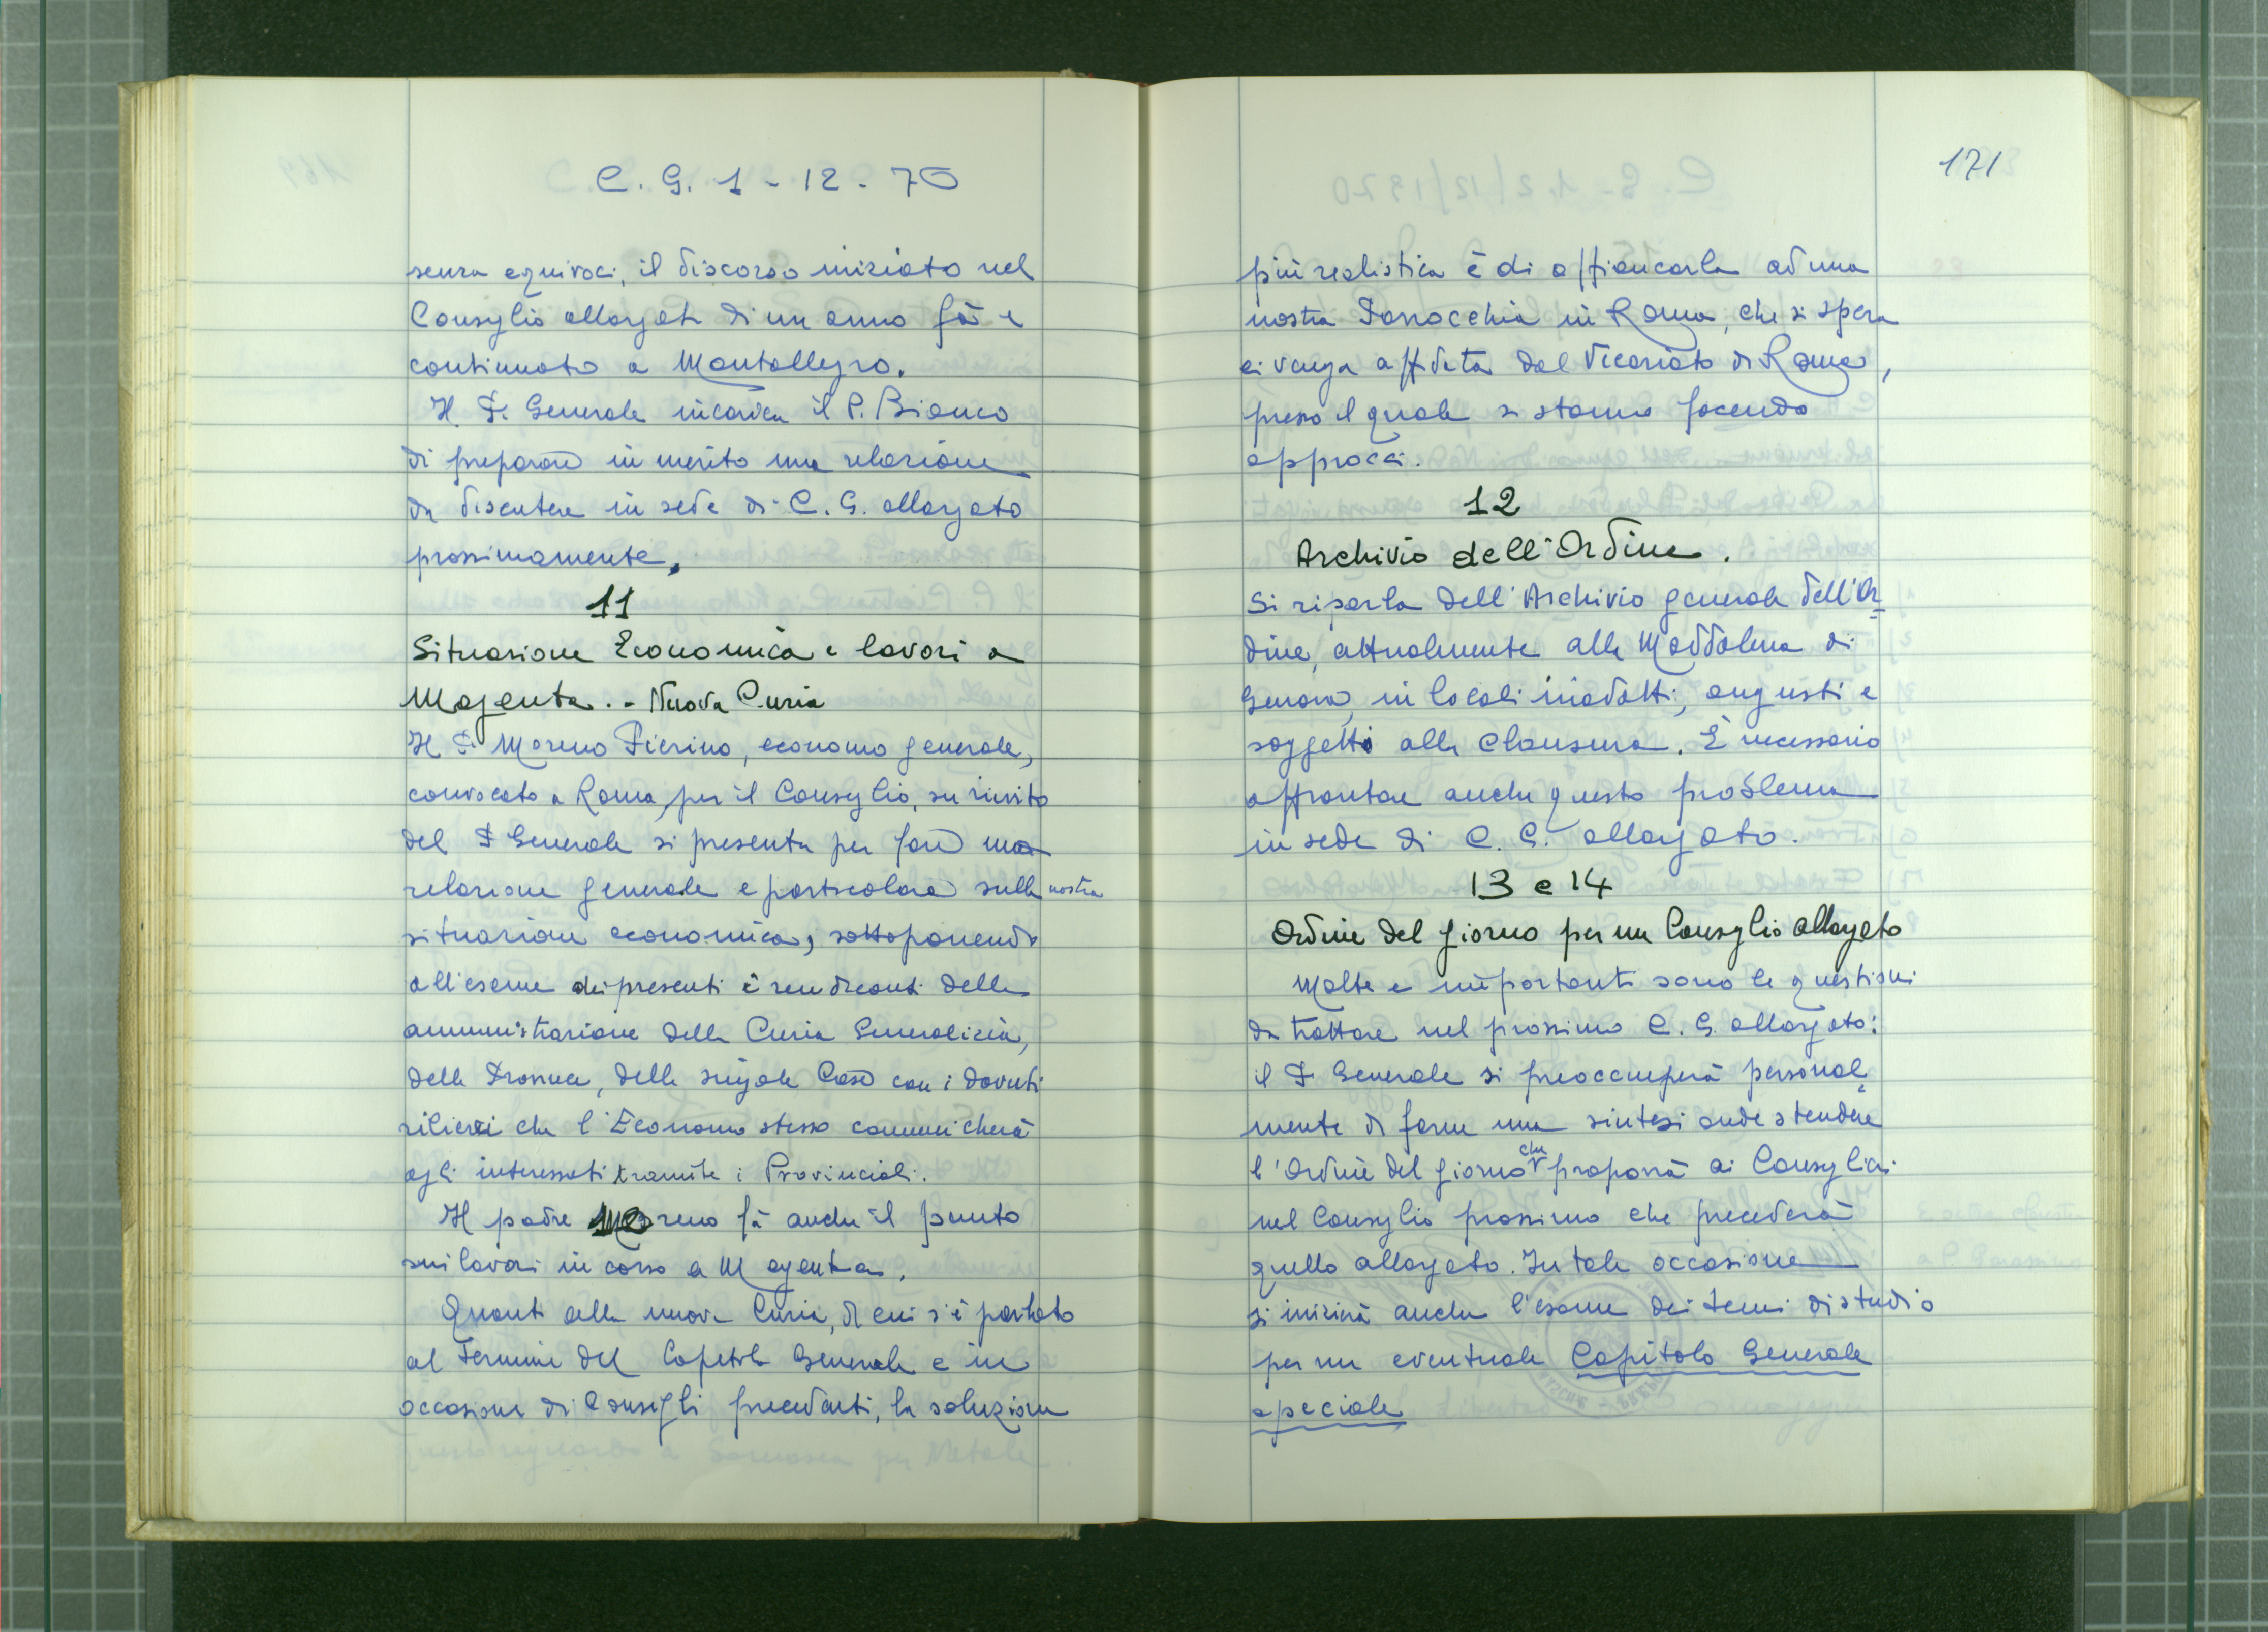 C. G. 1 - 12 - 70
senza equivoci, il discorso iniziato nel
Consiglio allargato di un anno fà e
continuato a Montallegro.
Il P. Generale incarica il P. Bianco
di preparare in merito una relazione
da discutere in sede di C. G. allargato
prossimamente.
11
Situazione Economica e lavori a
Magenta. - Nuova Curia
Il P. Moreno Pierino, economo generale,
convocato a Roma, per il Consiglio, su invito
del P Generale si presenta per fare una
relazione generale e particolare sulla nostra
situazione economica, sottoponendo
all'esame dei presenti i rendiconti della
amministrazione della Curia Generalizia,
delle Province, delle singole Case con i dovuti
rilievi che l'Economo stesso comunicherà
agli interessati tramite i Provinciali.
Il padre Moreno fà anche il punto
sui lavori in corso a Magenta.
Quanto alla nuova Curia, di cui s'è parlato
al termine del Capitolo Generale e in
occasione di Consigli precedenti, la soluzione
171
più realistica è di affiancarla ad una
nostra Parrocchia in Roma, che si spera
ci venga affidata dal Vicariato di Roma,
presso il quale si stanno facendo
approcci.
12
Archivio dell'Ordine.
Si riparla dell'Archivio generale dell'Or-
dine, attualmente alla Maddalena di
Genova, in locali inadatti, angusti e
soggetti alla clausura. È necessario
affrontare anche questo problema
in sede di C. G. allargato.
13 e 14
Ordine del giorno per un Consiglio allargato
Molte e importanti sono le questioni
da trattare nel prossimo C. G. allargato:
il P Generale si preoccuperà personal=
mente di farne una sintesi onde stendere
l'Ordine del giorno che proporrà ai Consiglieri
nel Consiglio prossimo che precederà
quello allargato. In tale occasione
si inizierà anche l'esame dei temi di studio
per un eventuale Capitolo Generale
speciale